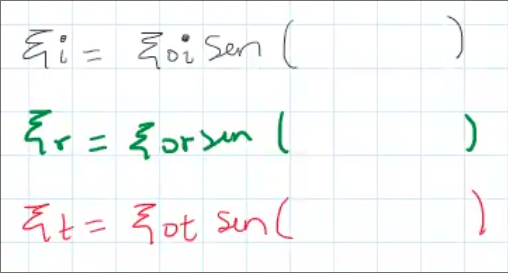 ξi = ξoi sen (      )
ξr = ξor sen (      )
ξt = ξot sen (      )